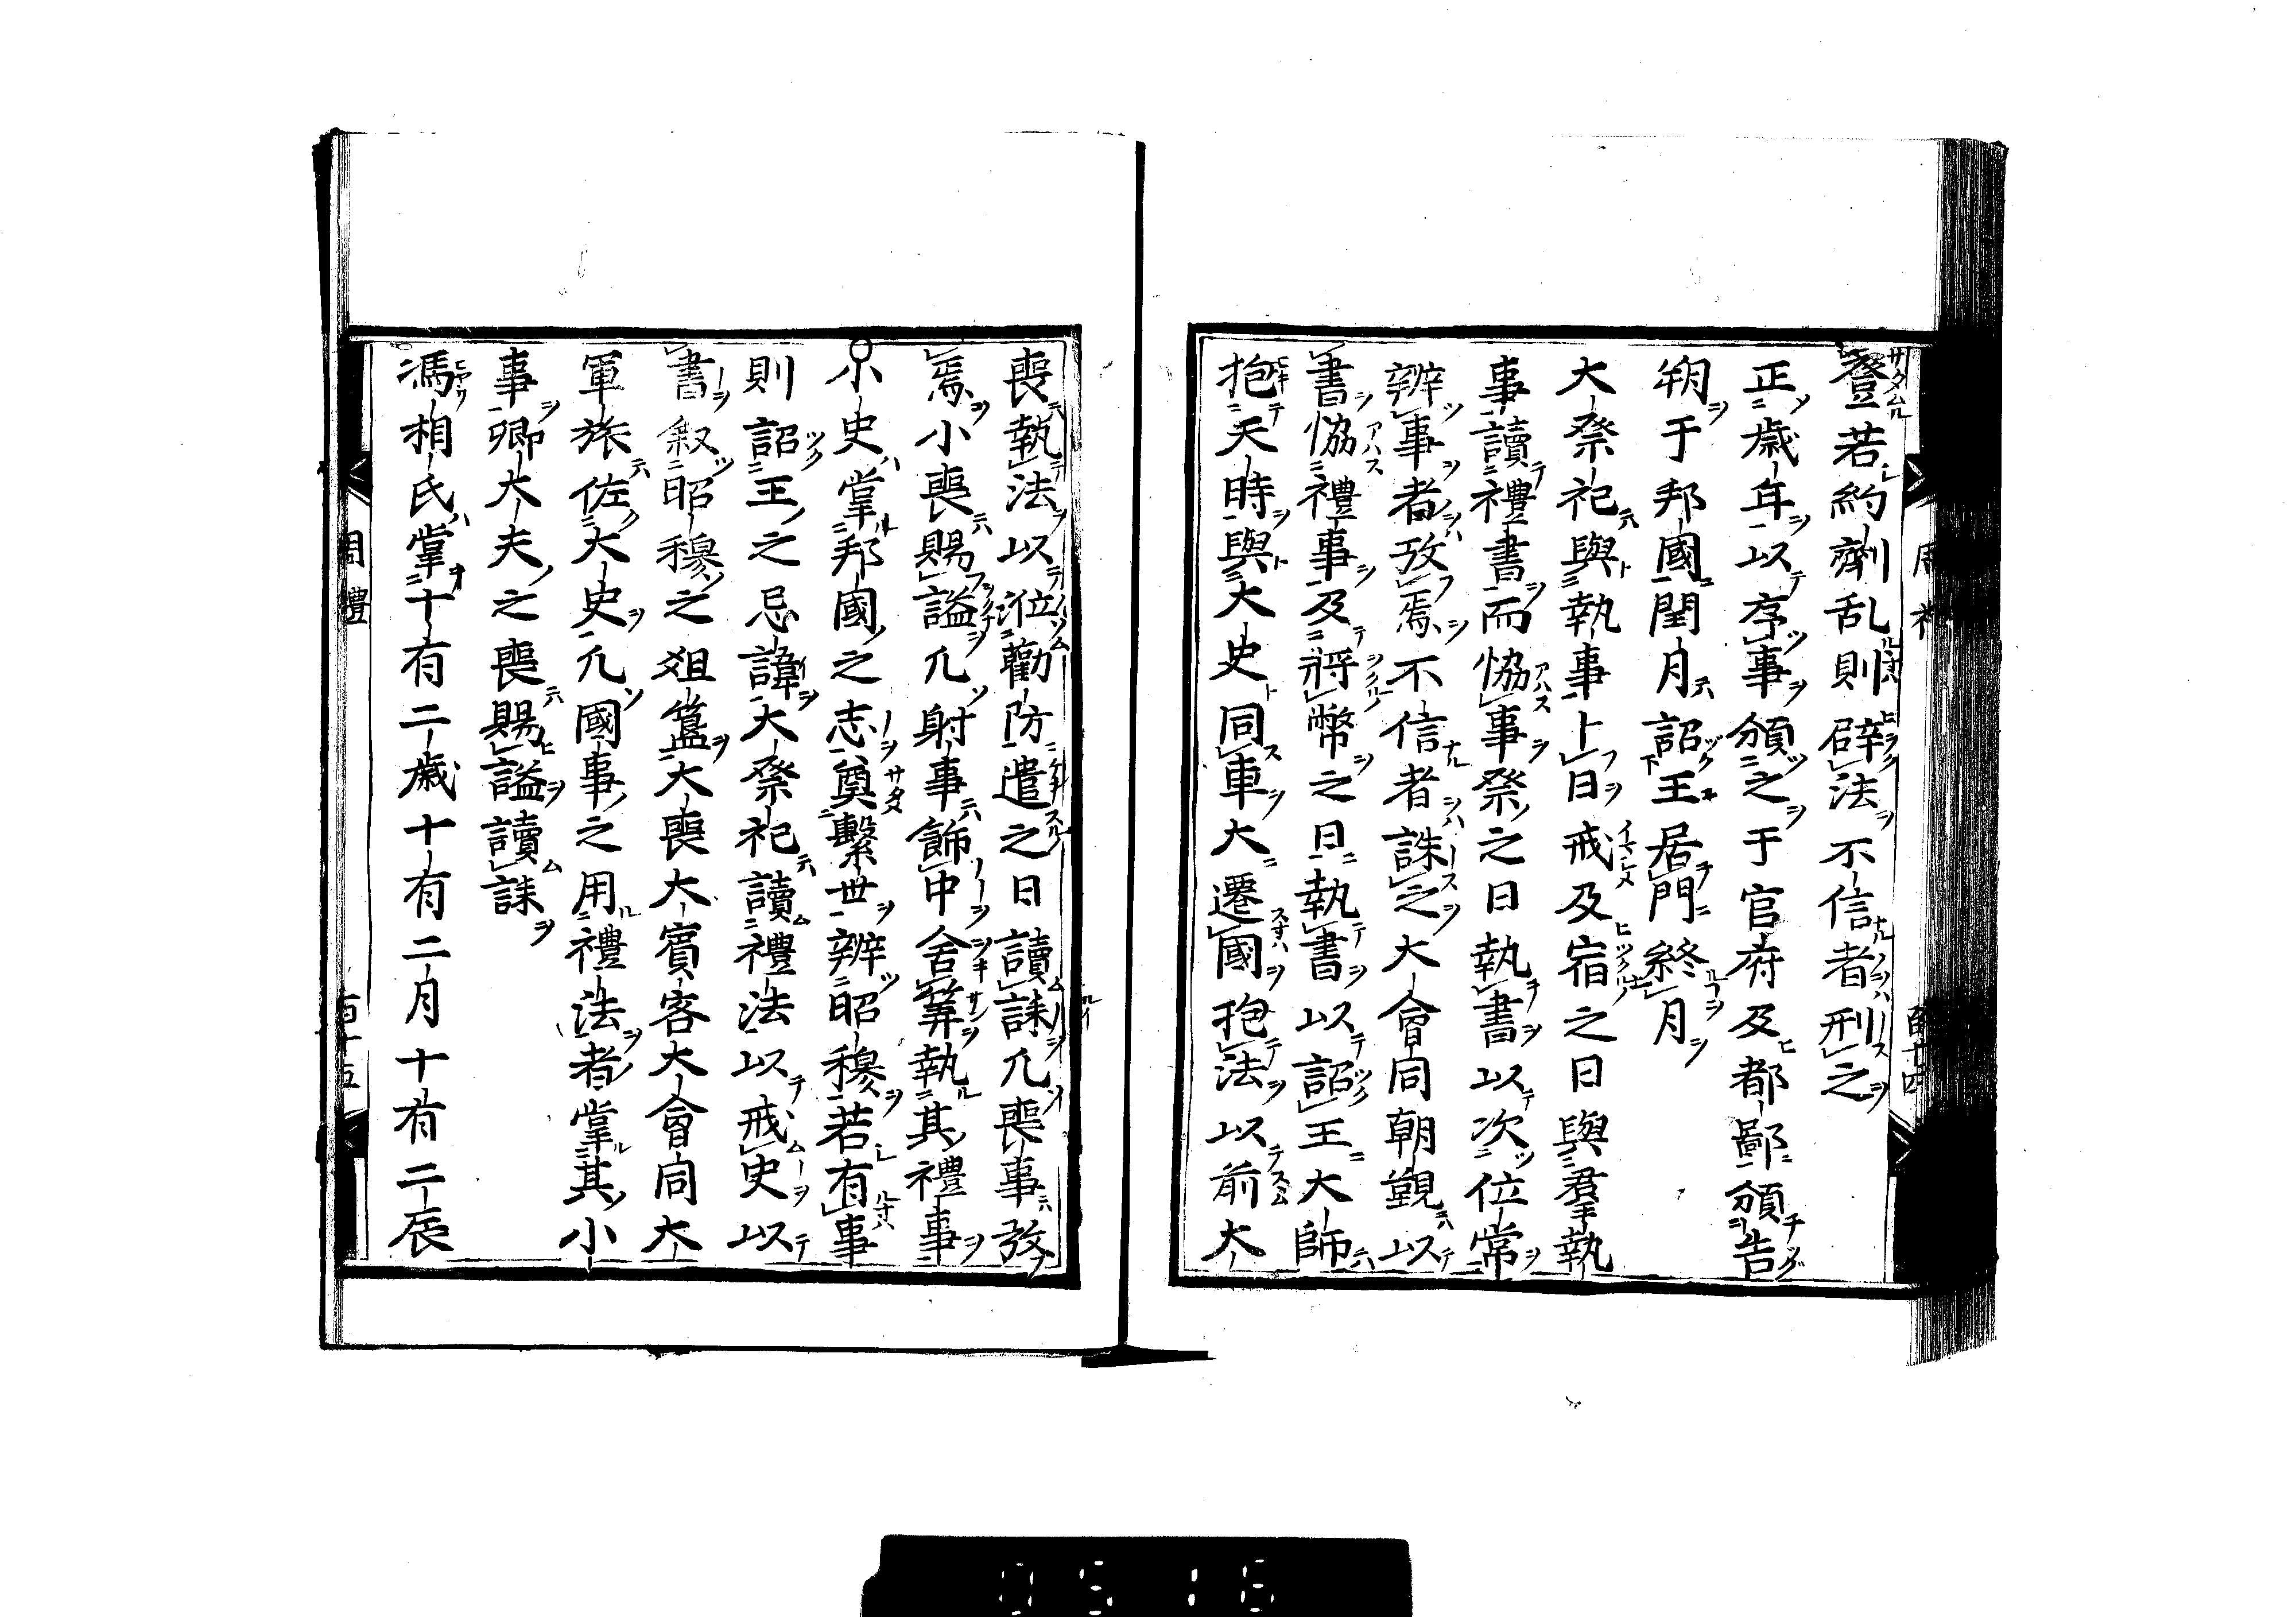 登若約劑乱則辟法不信者刑之
正歳年以序事頒之于官府及都鄙頒告
朔于邦國閏月詔王居門終月
大祭祀與執事卜日戒及宿之日與羣執
事讀禮書而恊事祭之日執書以次位常
辨事者攷焉不信者誅之大會同朝覲以
書恊禮事及將幣之日執書以詔王大師
抱天時與大史同車大遷國抱法以前大
喪執法以涖勸防遣之日讀誄凡喪事攷
焉小喪賜謚凡射事飾中舍筭執其禮事
小史掌邦國之志奠繫世辨昭穆若有事
則詔王之忌諱大祭祀讀禮法以戒史以
書叙昭穆之俎簋大喪大賓客大會同大
軍旅佐大史凡國事之用禮法者掌其小
事卿大夫之喪賜謚讀誄
馮相氏掌十有二歳十有二月十有二辰
周禮
百十五
0516